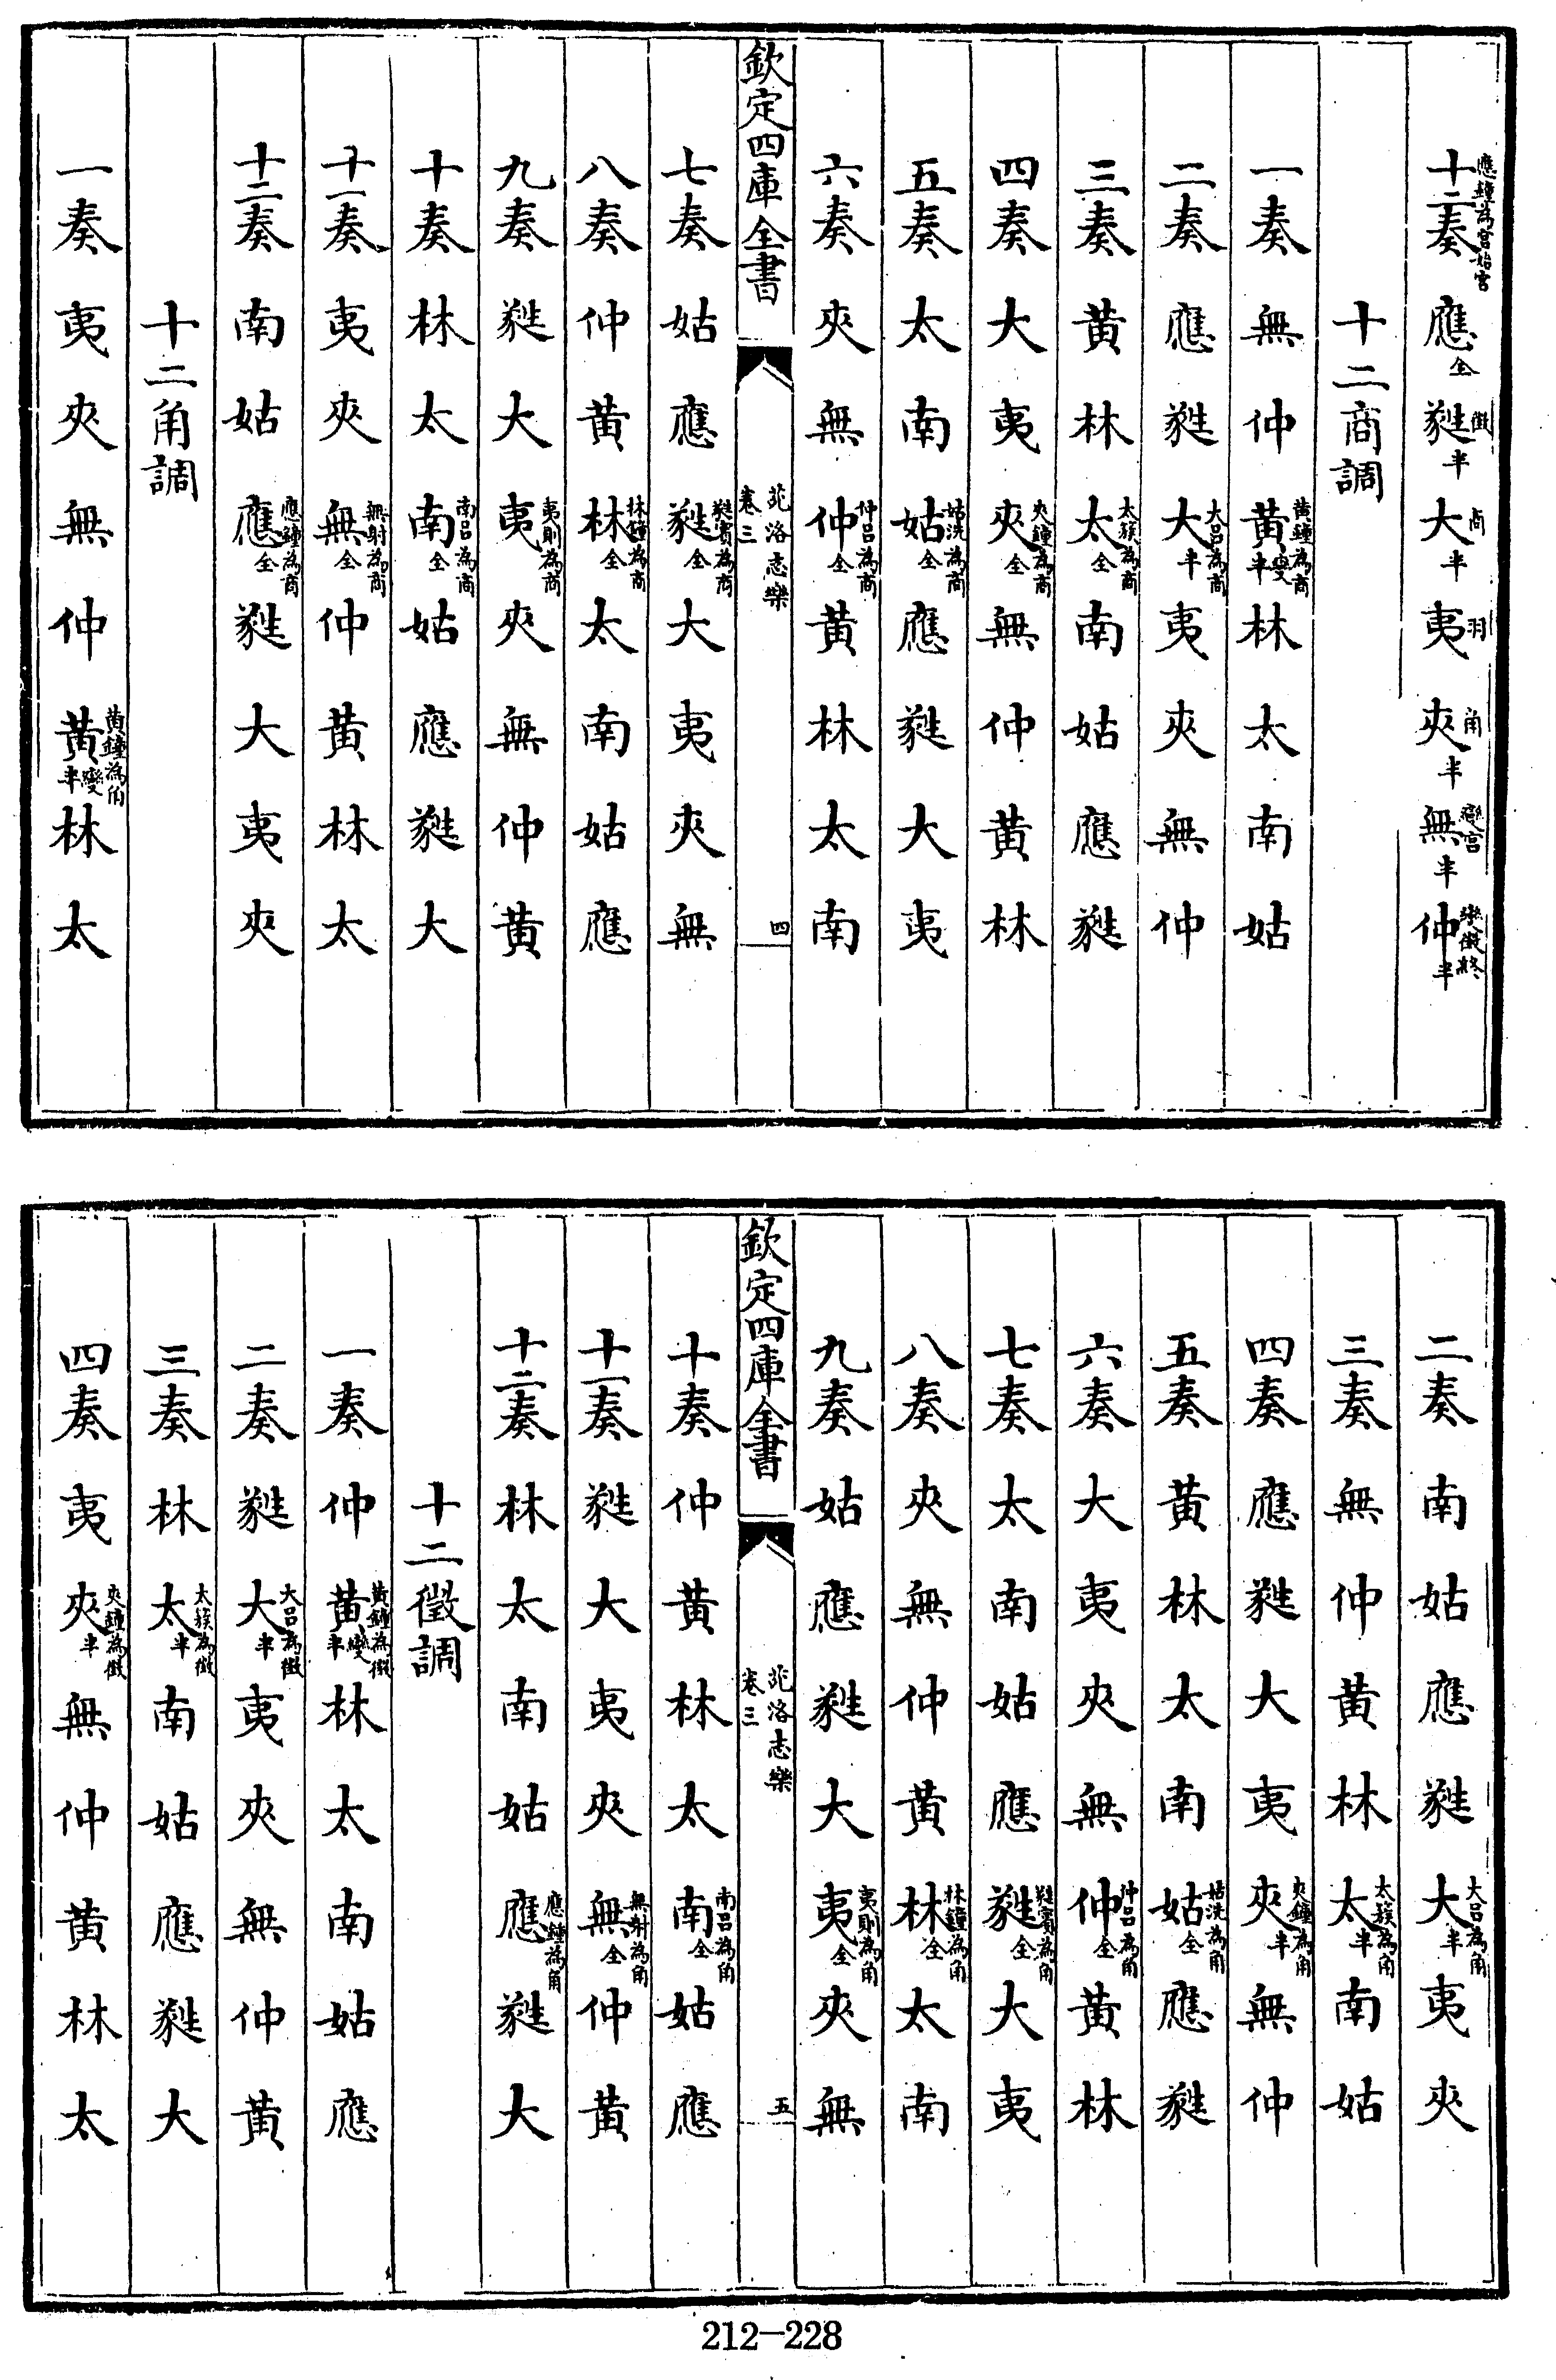 十二奏應鐘為宮始宮應全徵蕤半商大半羽夷角夾半變宮無半變徵終仲半
十二商調
一奏無仲黃黃鐘為商變半林太南姑
二奏應蕤大大呂為商半夷夾無仲
三奏黃林太太簇為商全南姑應蕤
四奏大夷夾夾鐘為商全無仲黃林
五奏太南姑姑洗為商全應蕤大夷
六奏夾無仲仲呂為商全黃林太南
欽定四庫全書
苑洛志樂
卷三
四
七奏姑應蕤蕤賓為商全大夷夾無
八奏仲黃林林鐘為商全太南姑應
九奏蕤大夷夷則為商夾無仲黃
十奏林太南南呂為商全姑應蕤大
十一奏夷夾無無射為商全仲黃林太
十二奏南姑應應鐘為商全蕤大夷夾
十二角調
一奏夷夾無仲黃黃鐘為角變半林太
二奏南姑應蕤大大呂為角半夷夾
三奏無仲黃林太太簇為角半南姑
四奏應蕤大夷夾夾鐘為角半無仲
五奏黃林太南姑姑洗為角全應蕤
六奏大夷夾無仲仲呂為角全黃林
七奏太南姑應蕤蕤賓為角全大夷
八奏夾無仲黃林林鐘為角全太南
九奏姑應蕤大夷夷則為角全夾無
欽定四庫全書
苑洛志樂
卷三
五
十奏仲黃林太南南呂為角全姑應
十一奏蕤大夷夾無無射為角全仲黃
十二奏林太南姑應應鐘為角蕤大
十二徵調
一奏仲黃黃鐘為徵變半林太南姑應
二奏蕤大大呂為徵半夷夾無仲黃
三奏林太太簇為徵半南姑應蕤大
四奏夷夾夾鐘為徵半無仲黃林太
212-228